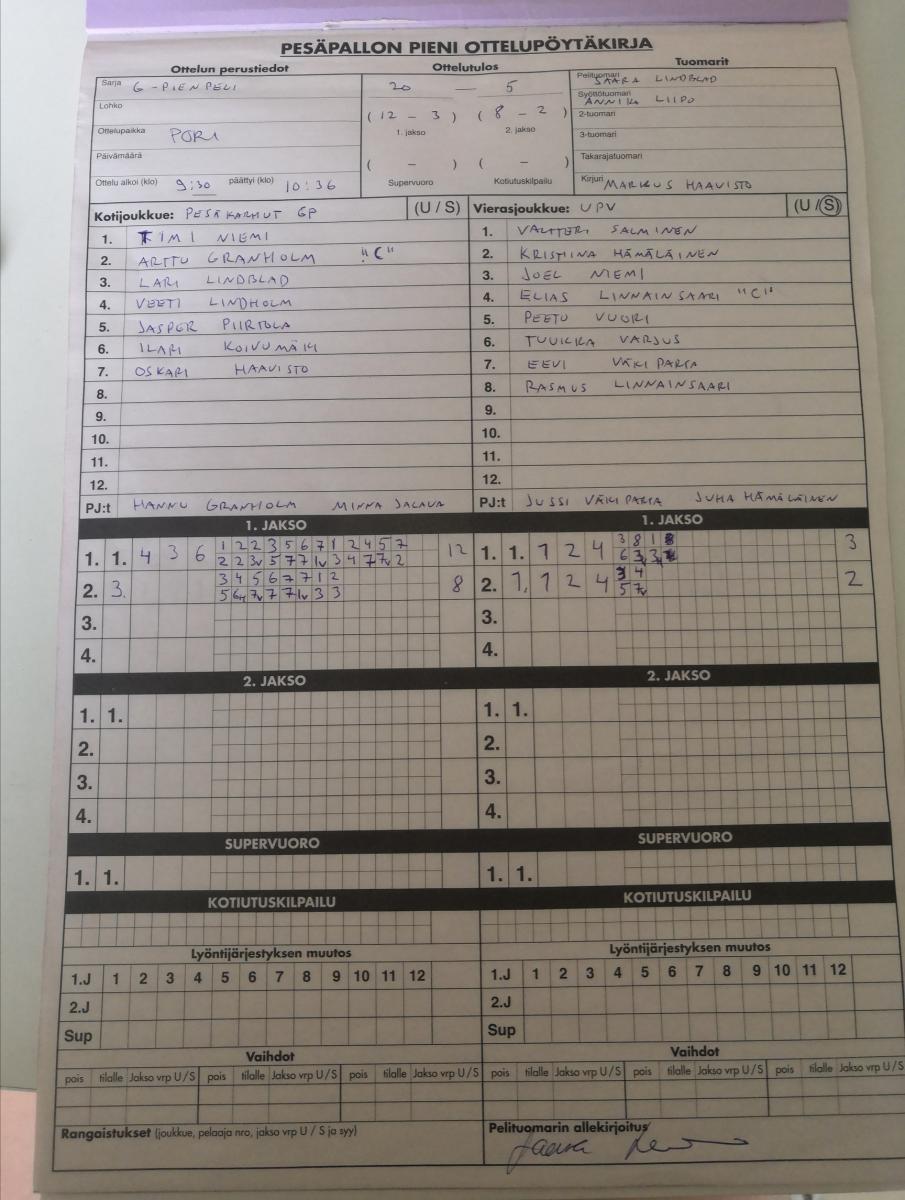 PESÄPALLON PIENI OTTELUPÖYTÄKIRJA
Ottelun perustiedot Ottelutulos Tuomarit
Sarja G-PIENPELI
Lohko
Ottelupaikka PORI
Päivämäärä
Ottelu alkoi (klo) 9:30 päättyi (klo) 10:36
20 — 5
(12 - 3) (8 - 2)
1. jakso 2. jakso
( - ) ( - )
Supervuoro Kotiutuskilpailu
Pelituomari SAARA LINDBLAD
Syöttötuomari ANNIKA LIIPO
2-tuomari
3-tuomari
Takarajatuomari
Kirjuri MARKUS HAAVISTO
Kotijoukkue: PESÄKARHUT GP (U / S)
1. TIMI NIEMI
2. ARTTU GRANHOLM "C"
3. LARI LINDBLAD
4. VEETI LINDHOLM
5. JASPER PIIRTOLA
6. ILARI KOIVUMÄKI
7. OSKARI HAAVISTO
8.
9.
10.
11.
12.
PJ:t HANNU GRANHOLM MINNA JALAVA
Vierasjoukkue: UPV (U / S)
1. VALTTERI SALMINEN
2. KRISTIINA HÄMÄLÄINEN
3. JOEL NIEMI
4. ELIAS LINNAINSAARI "C"
5. PEETU VUORI
6. TUUKKA VARJUS
7. EEVI VÄKIPARTA
8. RASMUS LINNAINSAARI
9.
10.
11.
12.
PJ:t JUSSI VÄKIPARTA JUHA HÄMÄLÄINEN
1. JAKSO
1. 1. 4 3 6 1 2 2 3 5 6 7 1 2 4 5 7 12
2 2 3v 5 7 7 1v 3 4 7 7v 2
2. 3. 3 4 5 6 7 7 1 2 8
3.
4.
1. JAKSO
1. 1. 1 2 4 3 8 1 3
2. 1, 1 2 4 4 2
5 7v
3.
4.
2. JAKSO
1. 1.
2.
3.
4.
2. JAKSO
1. 1.
2.
3.
4.
SUPERVUORO
1. 1.
SUPERVUORO
1. 1.
KOTIUTUSKILPAILU
KOTIUTUSKILPAILU
Lyöntijärjestyksen muutos
1.J 1 2 3 4 5 6 7 8 9 10 11 12
2.J
Sup
Lyöntijärjestyksen muutos
1.J 1 2 3 4 5 6 7 8 9 10 11 12
2.J
Sup
Vaihdot
pois tilalle Jakso vrp U / S pois tilalle Jakso vrp U / S pois tilalle Jakso vrp U / S
Vaihdot
pois tilalle Jakso vrp U / S pois tilalle Jakso vrp U / S pois tilalle Jakso vrp U / S
Rangaistukset (joukkue, pelaaja nro, jakso vrp U / S ja syy)
Pelituomarin allekirjoitus